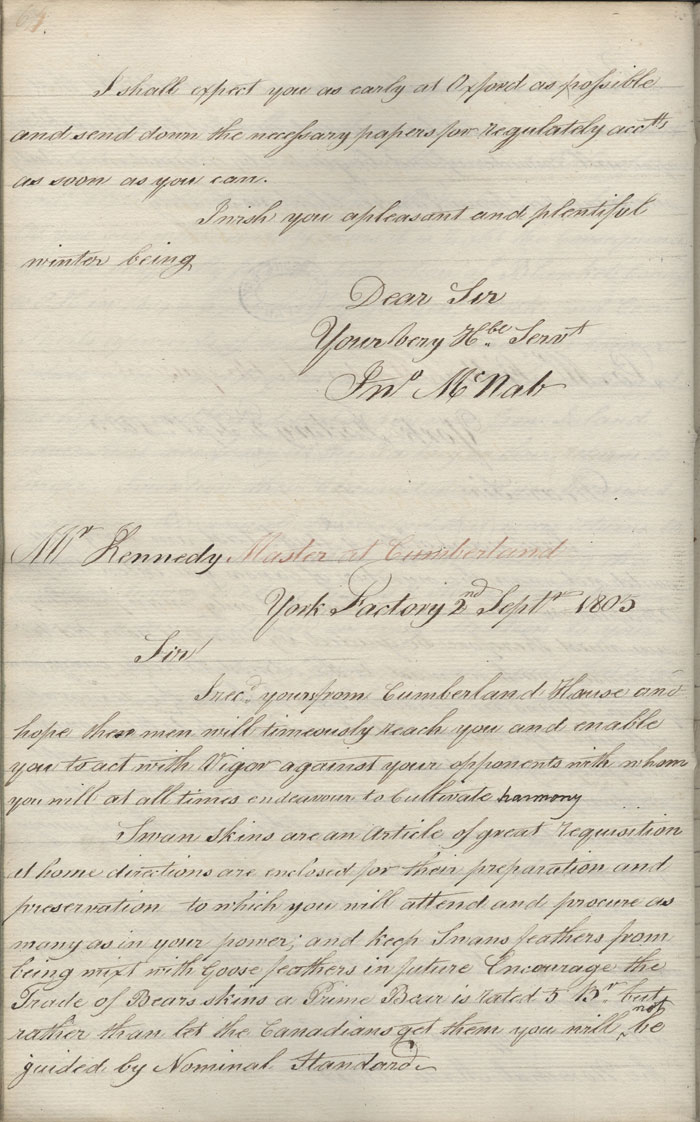 64
I shall expect you as early at Oxford as possible
and send down the necessary papers for regulately acctts
as soon as you can.
I wish you a pleasant and plentiful
winter being
Dear Sir
Your very Hble Servt
Jno McNab
Mr Kennedy Master at Cumberland
York Factory 2nd Septr 1805
Sir
I recd yours from Cumberland House and
hope then men will timeously reach you and enable
you to act with Vigor against your opponents with whom
you will at all times endeavour to Cultivate harmony
Swan skins are an Article of great requisition
at home directions are enclosed for their preparation and
preservation to which you will attend and procure as
many as in your power; and keep Swans feathers from
being mixt with Goose feathers in future Encourage the
Trade of Bears skins a Prime Bear is rated 5 Br but
rather than let the Canadians get them you will not be
guided by Nominal Standard